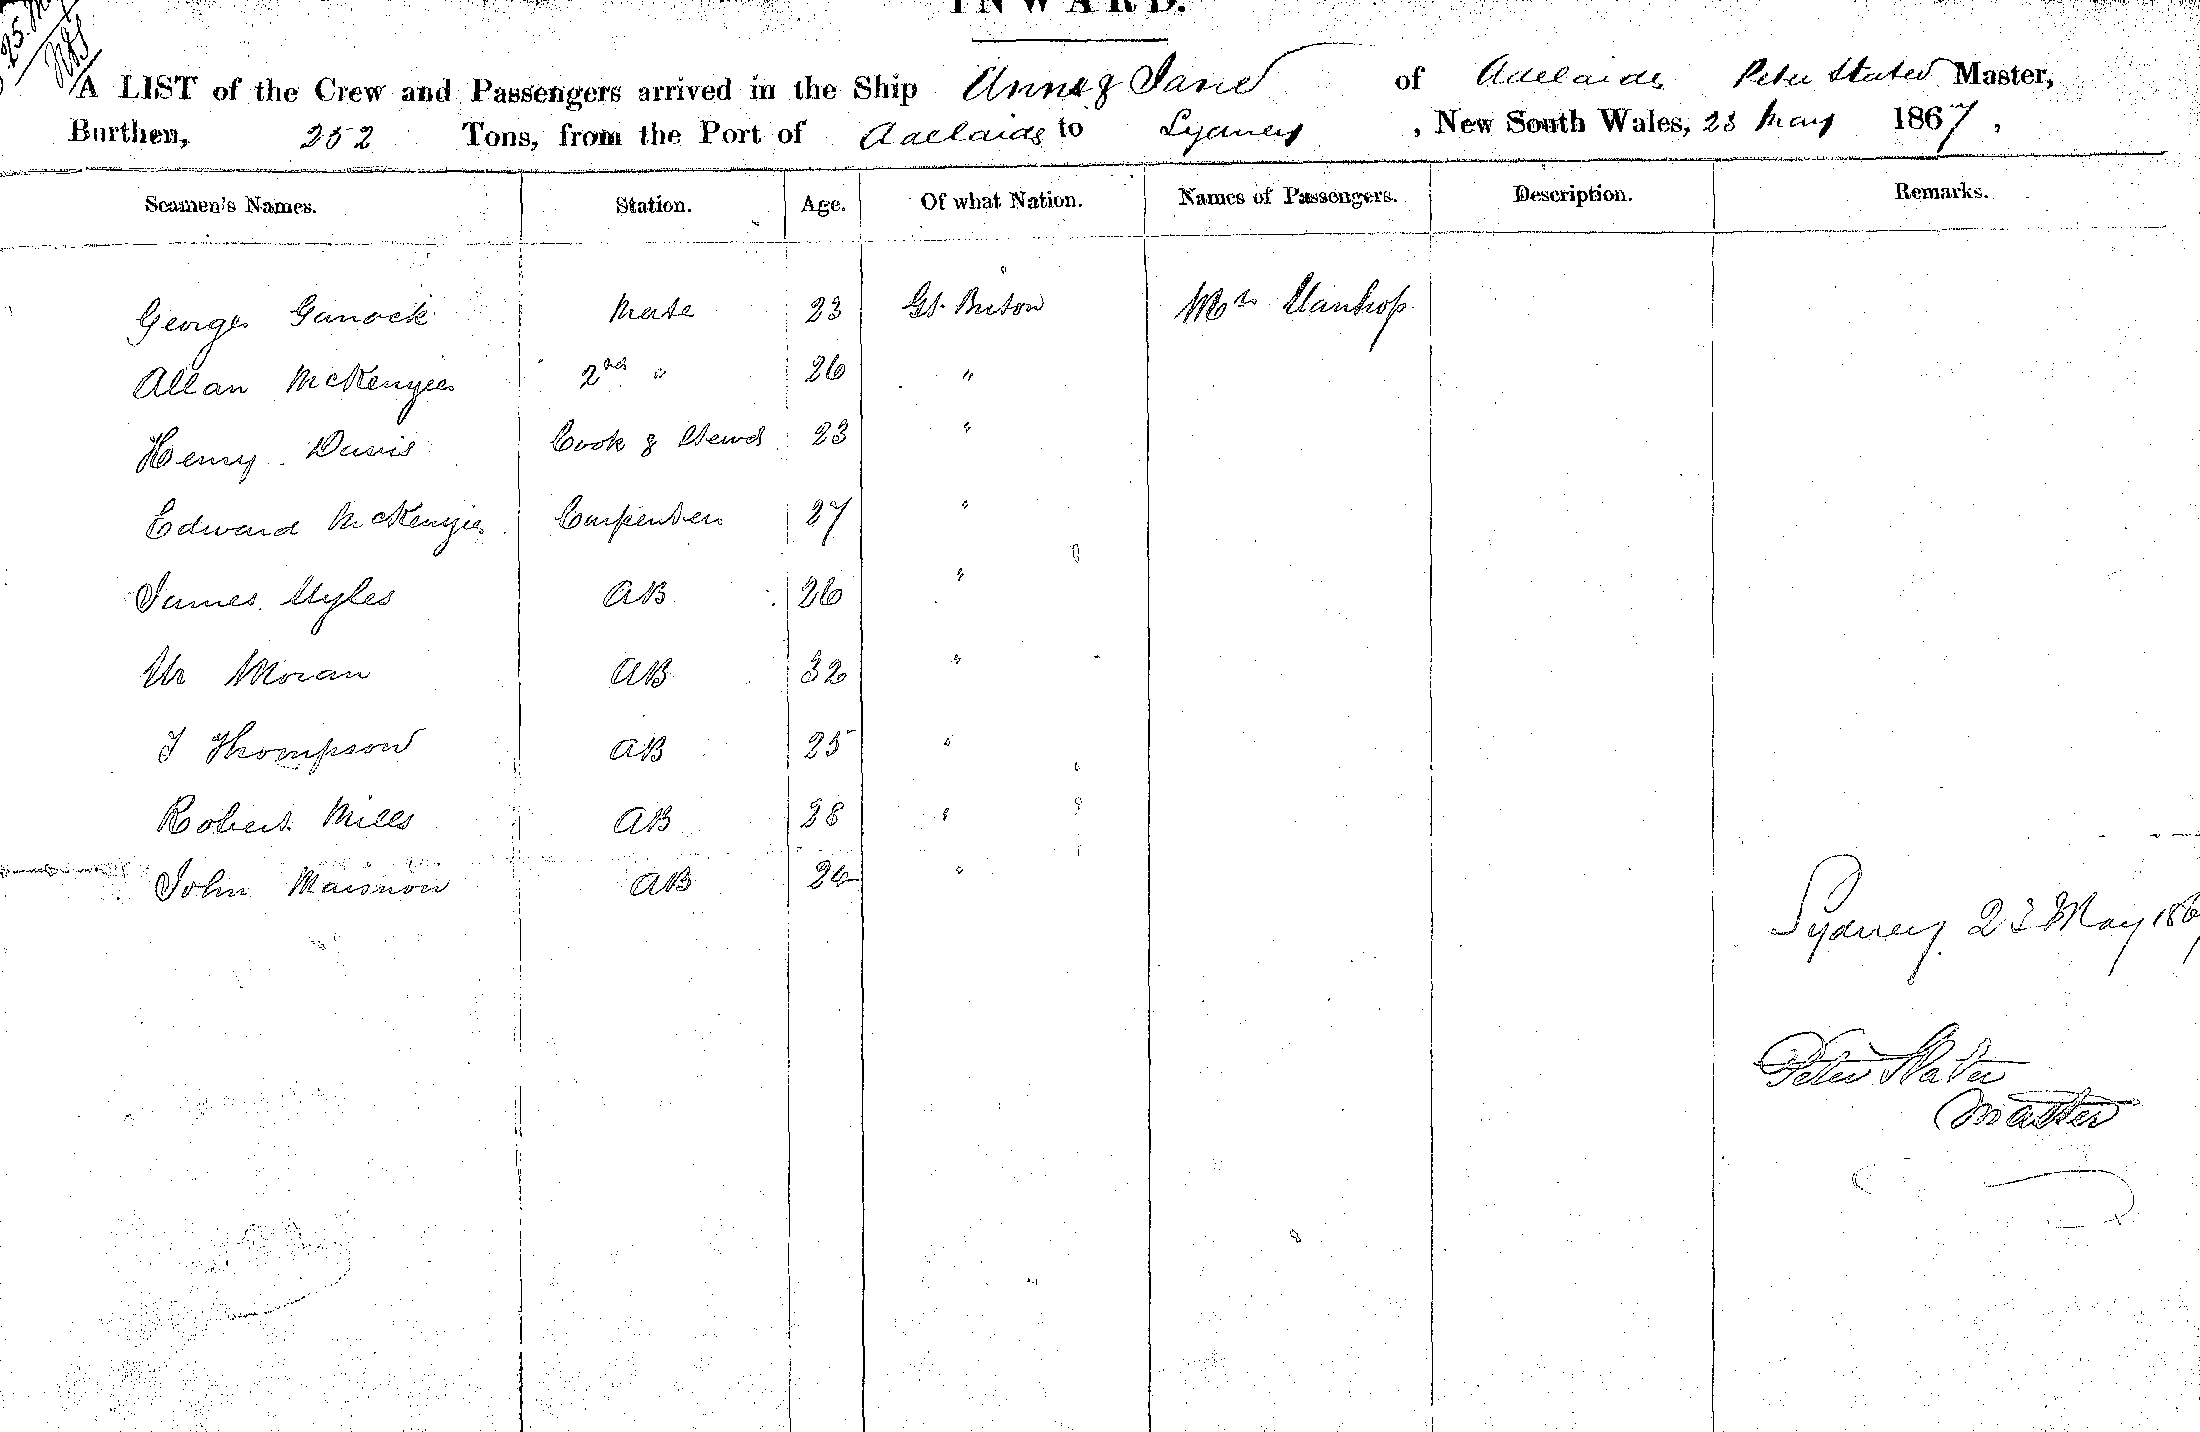 INWARD.
A LIST of the Crew and Passengers arrived in the Ship Anne & Jane of Adelaide Peter Slater Master,
Burthen, 252 Tons, from the Port of Adelaide to Sydney, New South Wales, 23 May 1867,
Seamen's Names. Station. Age. Of what Nation. Names of Passengers. Description. Remarks.
George Mate 23 Gt. Briton Mrs Stanhop
Allan McKenzie 2nd " 26 "
Henry Davis Cook & Stewd 23 "
Edward McKenzie Carpenter 27 "
James Myles AB 26 "
Wm Moran AB 32 "
J Thompson AB 25 "
Robert Mills AB 28 "
John AB "
Sydney 23 May 1867
Peter Slater
Master